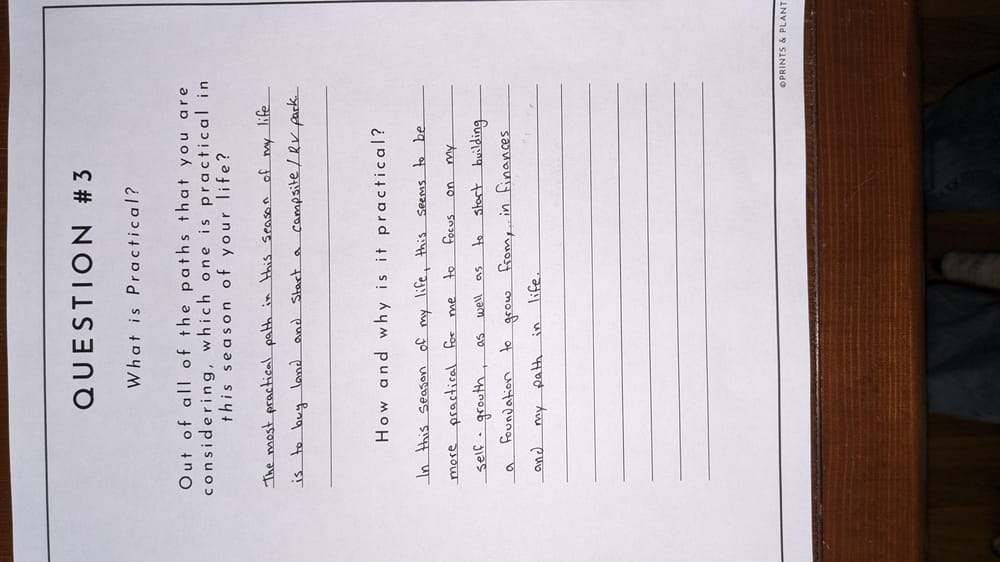 QUESTION #3
What is Practical?
Out of all of the paths that you are
considering, which one is practical in
this season of your life?
The most practical path in this season of my life
is to buy land and start a campsite/RV park.
How and why is it practical?
In this season of my life, this seems to be
more practical for me to focus on my
self-grouth, as well as to start building
a foundation to grow from, in finances
and my path in life.
©PRINTS & PLANT